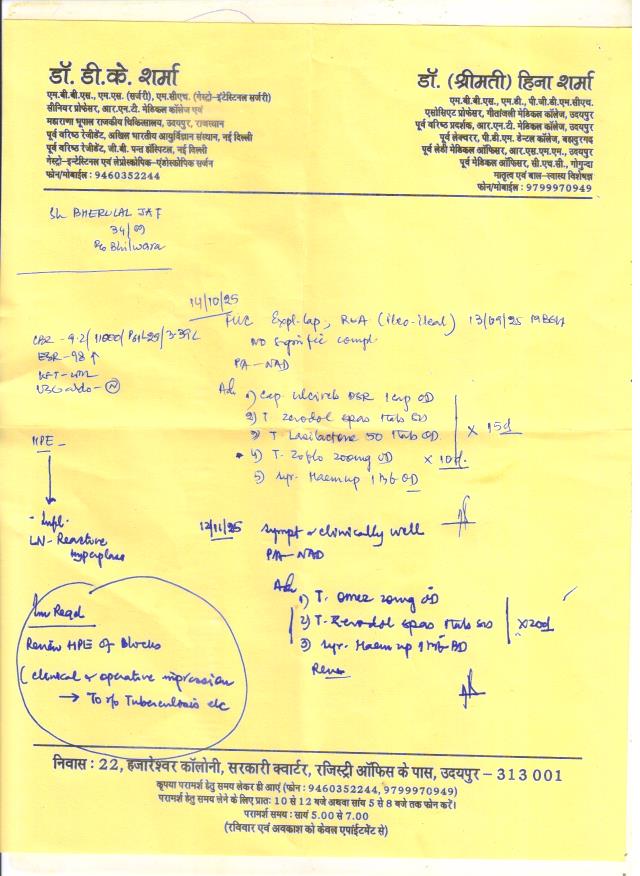 डॉ. डी.के. शर्मा
एम.बी.बी.एस., एम.एस. (सर्जरी), एम.सीएच. (गेस्ट्रो-इंटेस्टिनल सर्जरी)
सीनियर प्रोफेसर, आर.एन.टी. मेडिकल कॉलेज एवं
महाराणा भूपाल राजकीय चिकित्सालय, उदयपुर, राजस्थान
पूर्व वरिष्ठ रेजीडेंट, अखिल भारतीय आयुर्विज्ञान संस्थान, नई दिल्ली
पूर्व वरिष्ठ रेजीडेंट, जी.बी. पन्त हॉस्पिटल, नई दिल्ली
गेस्ट्रो-इन्टेस्टिनल एवं लेप्रोस्कोपिक-एंडोस्कोपिक सर्जन
फोन/मोबाईल : 9460352244
डॉ. (श्रीमती) हिना शर्मा
एम.बी.बी.एस., एम.डी., पी.जी.डी.एम.सीएच.
एसोसिएट प्रोफेसर, गीतांजली मेडिकल कॉलेज, उदयपुर
पूर्व वरिष्ठ प्रदर्शक, आर.एन.टी. मेडिकल कॉलेज, उदयपुर
पूर्व लेक्चरर, पी.डी.एम. डेन्टल कॉलेज, बहादुरगढ़
पूर्व लेडी मेडिकल ऑफिसर, आर.एस.एम.एन., उदयपुर
पूर्व मेडिकल ऑफिसर, सी.एच.सी., गोगुन्दा
मातृत्व एवं बाल-स्वास्थ्य विशेषज्ञ
फोन/मोबाईल : 9799970949
Sh BHERULAL JAT
34/
Bhilwara
14/10/25
FUC Expl-Lap, RnA (ileo-ileal) 13/09/25 MBGH
NO signific compl.
PA-NAD
CBR - 9.2/11000/
ESR-98 ↑
N
Adv 1) Cap DSR 1cap OD
2) T. Zerodol spas 1tab SOS
3) T. Lasilactone 50 1tab OD
x 15d
4) T. Zoflo 200mg OD x 10d
5) Syr. Haemup 1 OD
HPE -
- Infl.
LN - Reactive
hyperplasia
12/11/25 Sympt & clinically well
P/A-NAD
Adv
1) T. Omez 20mg OD
2) T. Zerodol spas 1tab SOS
x 20d
3) Syr. Haemup BD
Review HPE of Blocks
(clinical & operative impression
→ To r/o Tuberculosis etc
निवास : 22, हजारेश्वर कॉलोनी, सरकारी क्वार्टर, रजिस्ट्री ऑफिस के पास, उदयपुर – 313 001
कृपया परामर्श हेतु समय लेकर ही आएं (फोन : 9460352244, 9799970949)
परामर्श हेतु समय लेने के लिए प्रातः 10 से 12 बजे अथवा सांय 5 से 8 बजे तक फोन करें।
परामर्श समय : सायं 5.00 से 7.00
(रविवार एवं अवकाश को केवल एपाईंटमेंट से)